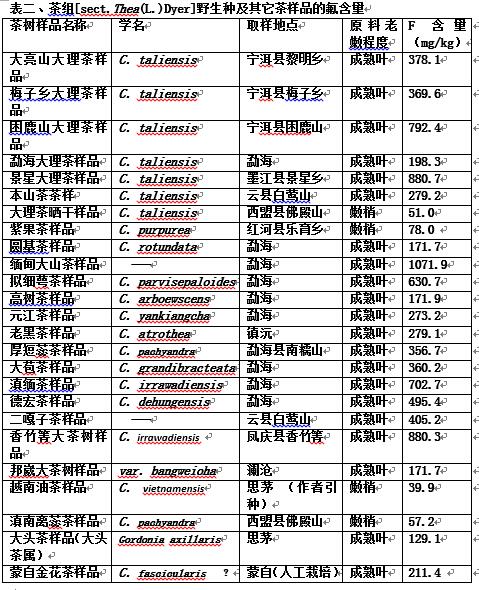 表二、茶组[sect. Thea(L.)Dyer]野生种及其它茶样品的氟含量
茶树样品名称 学名 取样地点 原料老嫩程度 F 含量(mg/kg)
大亮山大理茶样品 C. taliensis 宁洱县黎明乡 成熟叶 378.1
梅子乡大理茶样品 C. taliensis 宁洱县梅子乡 成熟叶 369.6
困鹿山大理茶样品 C. taliensis 宁洱县困鹿山 成熟叶 792.4
勐海大理茶样品 C. taliensis 勐海 成熟叶 198.3
景星大理茶样品 C. taliensis 墨江县景星乡 成熟叶 880.7
本山茶茶样 C. taliensis 云县白莺山 成熟叶 279.2
大理茶晒干样品 C. taliensis 西盟县佛殿山 嫩梢 51.0
紫果茶样品 C. purpurea 红河县乐育乡 嫩梢 78.0
圆基茶样品 C. rotundata 勐海 成熟叶 171.7
缅甸大山茶样品 —— 勐海 成熟叶 1071.9
拟细萼茶样品 C. parvisepaloides 勐海 成熟叶 630.7
高树茶样品 C. arboewscens 勐海 成熟叶 171.9
元江茶样品 C. yankiangcha 勐海 成熟叶 273.2
老黑茶样品 C. atrothea 镇沅 成熟叶 279.1
厚短蕊茶样品 C. pachyandra 勐海县南糯山 成熟叶 356.7
大苞茶样品 C. grandibracteata 勐海 成熟叶 360.2
滇缅茶样品 C. irrawadiensis 勐海 成熟叶 702.7
德宏茶样品 C. dehungensis 勐海 成熟叶 495.4
二嘎子茶样品 —— 云县白莺山 成熟叶 405.2
香竹箐大茶树样品 C. irrawadiensis 凤庆县香竹箐 成熟叶 880.3
邦崴大茶树样品 var. bangweioha 澜沧 成熟叶 171.7
越南油茶样品 C. vietnamensis 思茅（作者引种） 嫩梢 39.9
滇南离蕊茶样品 C. pachyandra 西盟县佛殿山 嫩梢 57.2
大头茶样品(大头茶属) Gordonia axillaris 思茅 成熟叶 129.1
蒙自金花茶样品 C. fascicularis ? 蒙自(人工栽培) 成熟叶 211.4